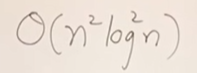 O(n² log² n)